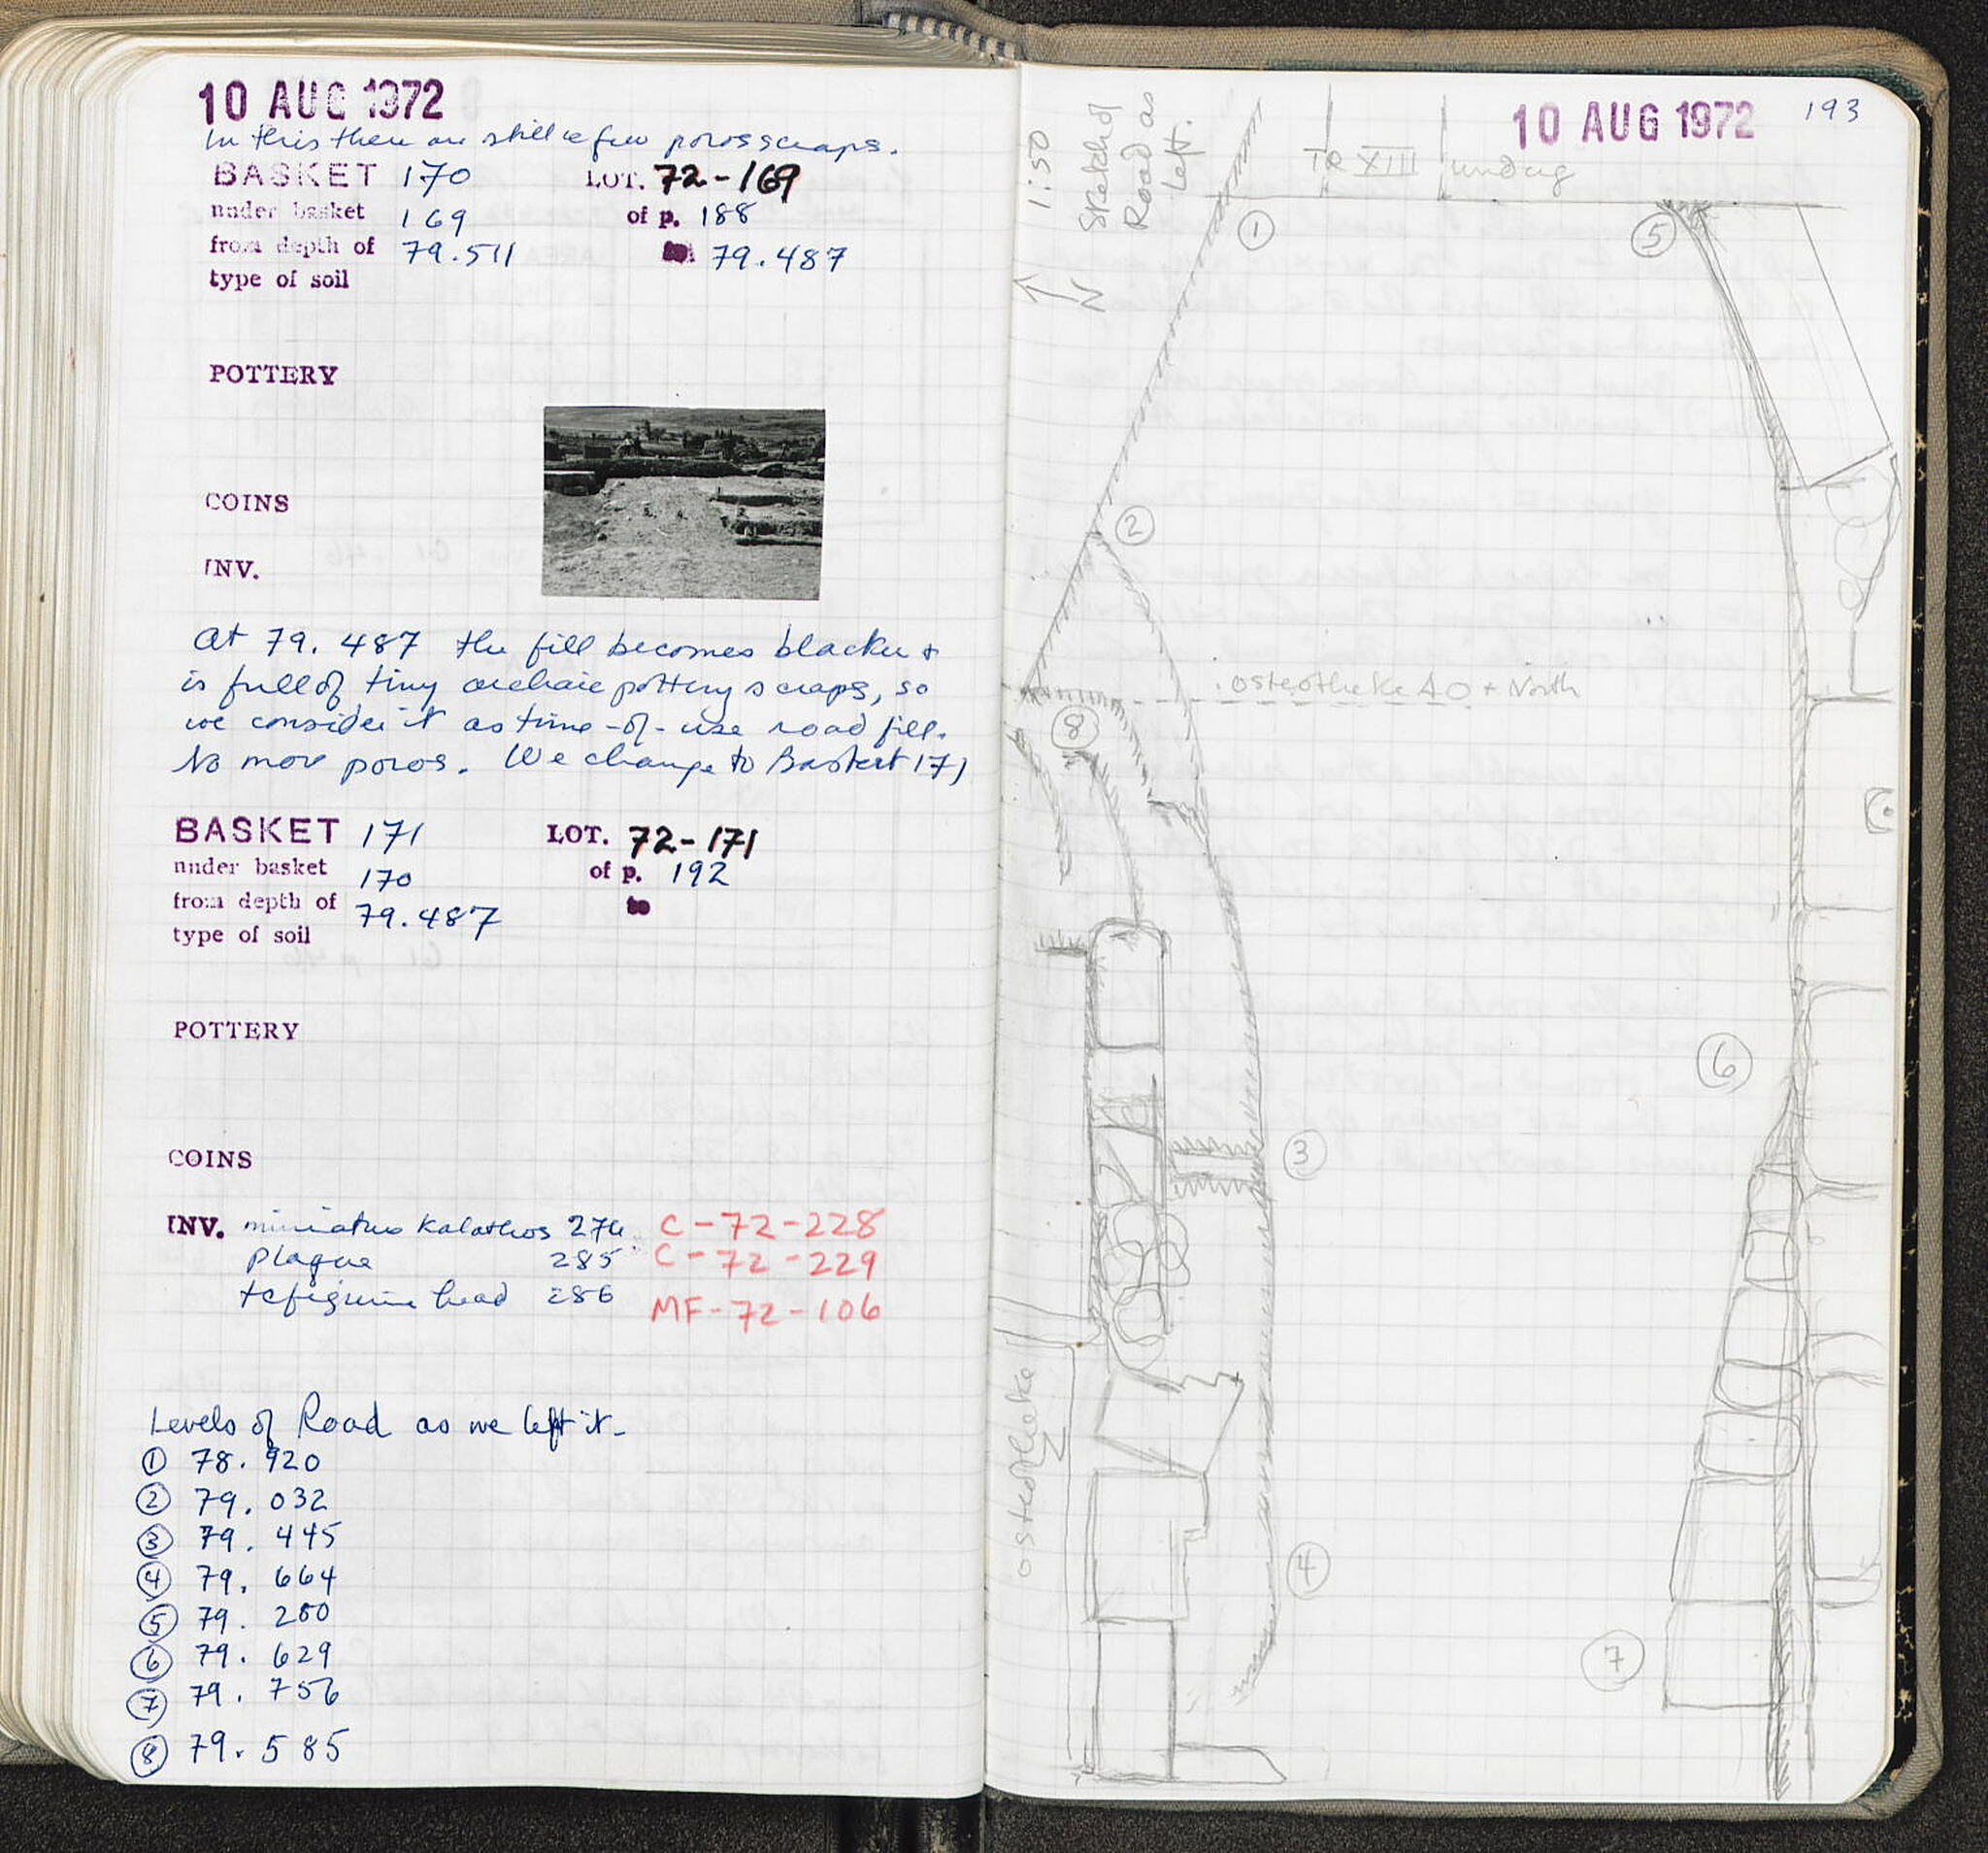 10 AUG 1972
In this there are still a few poros scraps.
BASKET 170 LOT. 72-169
under basket 169 of p. 188
from depth of 79.511 to 79.487
type of soil
POTTERY
COINS
INV.
At 79.487 the fill becomes blacker +
is full of tiny archaic pottery scraps, so
we consider it as time-of-use road fill.
No more poros. We change to Basket 171
BASKET 171 LOT. 72-171
under basket 170 of p. 192
from depth of 79.487 to
type of soil
POTTERY
COINS
INV. miniature kalathos 274 C-72-228
plaque 285 C-72-229
tc figurine head 286 MF-72-106
Levels of Road as we left it-
① 78.920
② 79.032
③ 79.445
④ 79.664
⑤ 79.
⑥ 79.629
⑦ 79.756
⑧ 79.585
10 AUG 1972 193
1:50
Sketch of
Road as
left.
N
TR XIII undug
①
⑤
②
osteotheke 40 + North
⑧
⑥
③
osteotheke
④
⑦